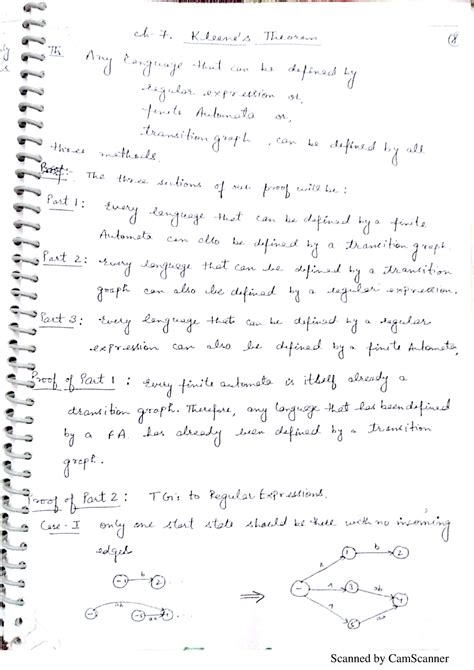 ch-7. Kleene's Theorem
Th Any language that can be defined by
regular expression or,
finite Automata or,
transition graph, can be defined by all
three methods.
Proof:- The three sections of our proof will be:
Part 1: Every language that can be defined by a finite
Automata can also be defined by a transition graph.
Part 2: Every language that can be defined by a transition
graph can also be defined by a regular expression.
Part 3: Every language that can be defined by a regular
expression can also be defined by a finite Automata.
Proof of Part 1: Every finite automata is itself already a
transition graph. Therefore, any language that has been defined
by a FA has already been defined by a transition
graph.
Proof of Part 2: TG's to Regular Expressions.
Case-I only one start state should be there with no incoming
edges
b
2
⇒
1
b
2
3
ab
Scanned by CamScanner